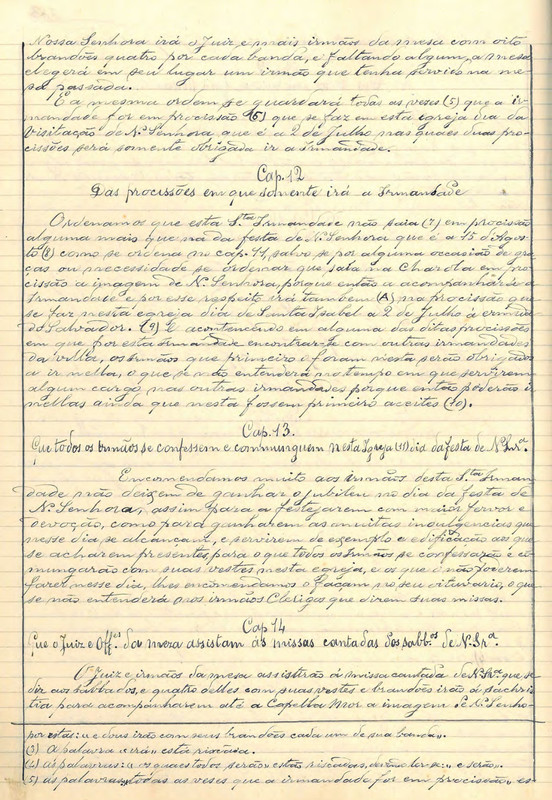 Nossa Senhora irá o Juiz e mais irmãos da mesa com oito
brandões quatro por cada banda, e faltando algum, a mesa
elegerá em seu lugar um irmão que tenha servido na me-
sa passada.
E a mesma ordem se guardará todas as veses (5) que a ir-
mandade for em procissão (6) que se faz em esta egreja dia da
Visitação de N. Senhora, que é a 2 de Julho, nas quaes duas pro-
cissões será somente obrigada ir a Irmandade.
Cap. 12
Das procissões em que somente irá a Irmandade
Ordenamos que esta S.ta Irmandade não saia (7) em procissão
alguma mais que na da festa de N. Senhora que é a 15 d'Agos-
to (8) como se ordena no cap. 11, salvo se por alguma occasião de gra-
ças ou necessidade se ordenar que saia na Charola em pro-
cissão a imagem de N. Senhora, porque então a acompanhará a
Irmandade e por esse respeito irá tambem (A) na procissão que
se faz nesta egreja dia de Santa Isabel a 2 de Julho à ermida
do Salvador. (9) E acontencendo em alguma das ditas procissões
em que for esta Irmandade encontrar-se com outras irmandades
da villa, os Irmãos que primeiro o foram nesta serão obrigados
a ir nella, o que se não entenderá no tempo em que servirem
algum cargo nas outras irmandades porque então poderão ir
nellas ainda que nesta fossem primeiro aceites (10).
Cap. 13.
Que todos os Irmãos se confessem e communguem nesta Igreja (11) dia da festa de N. Snr.a
Encomendamos muito aos irmãos desta S.ta Irman-
dade não deixem de ganhar o jubileu no dia da festa de
N. Senhora, assim para a festejarem com maior fervor e
devoção, como para ganharem as muitas indulgencias que
nesse dia se alcançam, e servirem de exemplo e edificação aos que
se acharem presentes, para o que todos os Irmãos se confessarão e com-
mungarão com suas vestes nesta egreja, e os que o não poderem
fazer nesse dia, lhes encomendamos o façam no seu oitavario, o que
se não entenderá nos irmãos Clerigos que direm suas missas.
Cap 14
Que o Juiz e Off.es da meza assistam ás missas cantadas dos sabb.os de N. Sr.a
O Juiz e irmãos da mesa assistirão á missa cantada de N. Sr.a que se
diz aos sabbados, e quatro delles com suas vestes e brandões irão á sachris-
tia para acompanharem até a Capella Mor a imagem de N. Senho-
por estas: «e dous irão com seus brandões cada um de sua banda».
(3) A palavra «irá» está riscada.
(4) as palavras: «os quaes todos serão» estão riscadas,
(5) as palavras «todas as veses que a irmandade for em procissão» es-